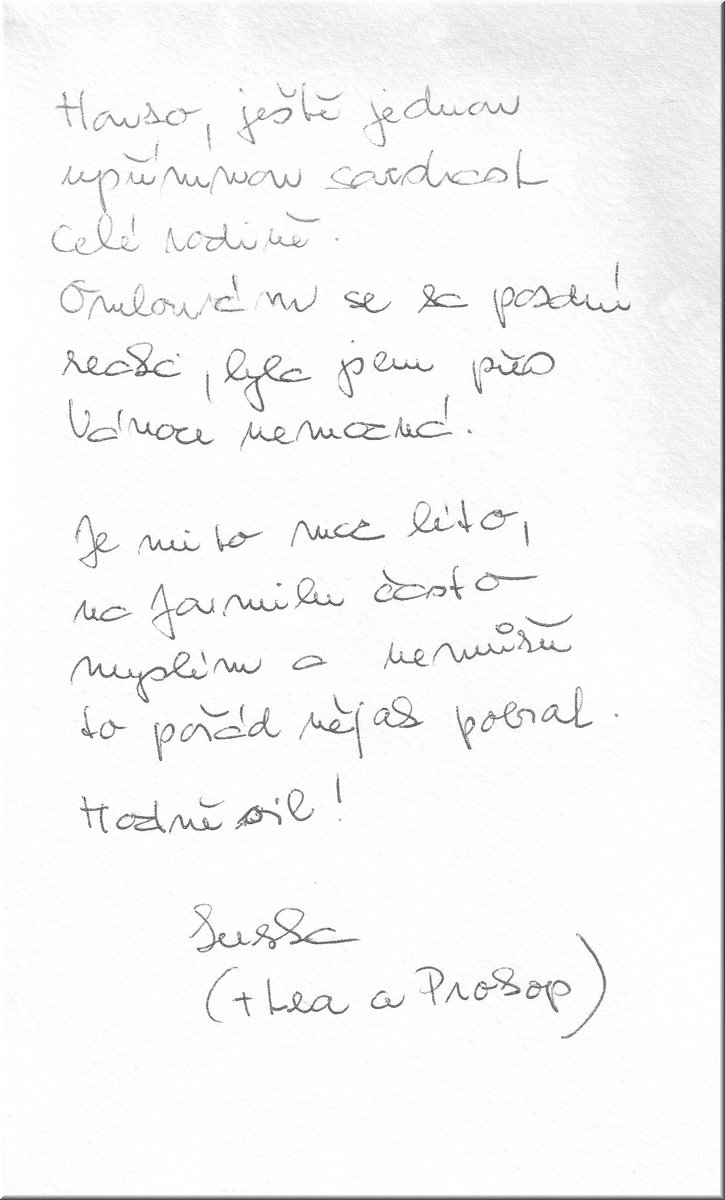 Hanso, ještě jednou
upřímnou soustrast
celé rodině.
Omlouvám se za pozdní
reakci, byla jsem přes
Vánoce nemocná.
Je mi to moc líto,
na Jarmilu často
myslím a nemůžu
to pořád nějak pobrat.
Hodně sil!
(+ Lea a Prokop)